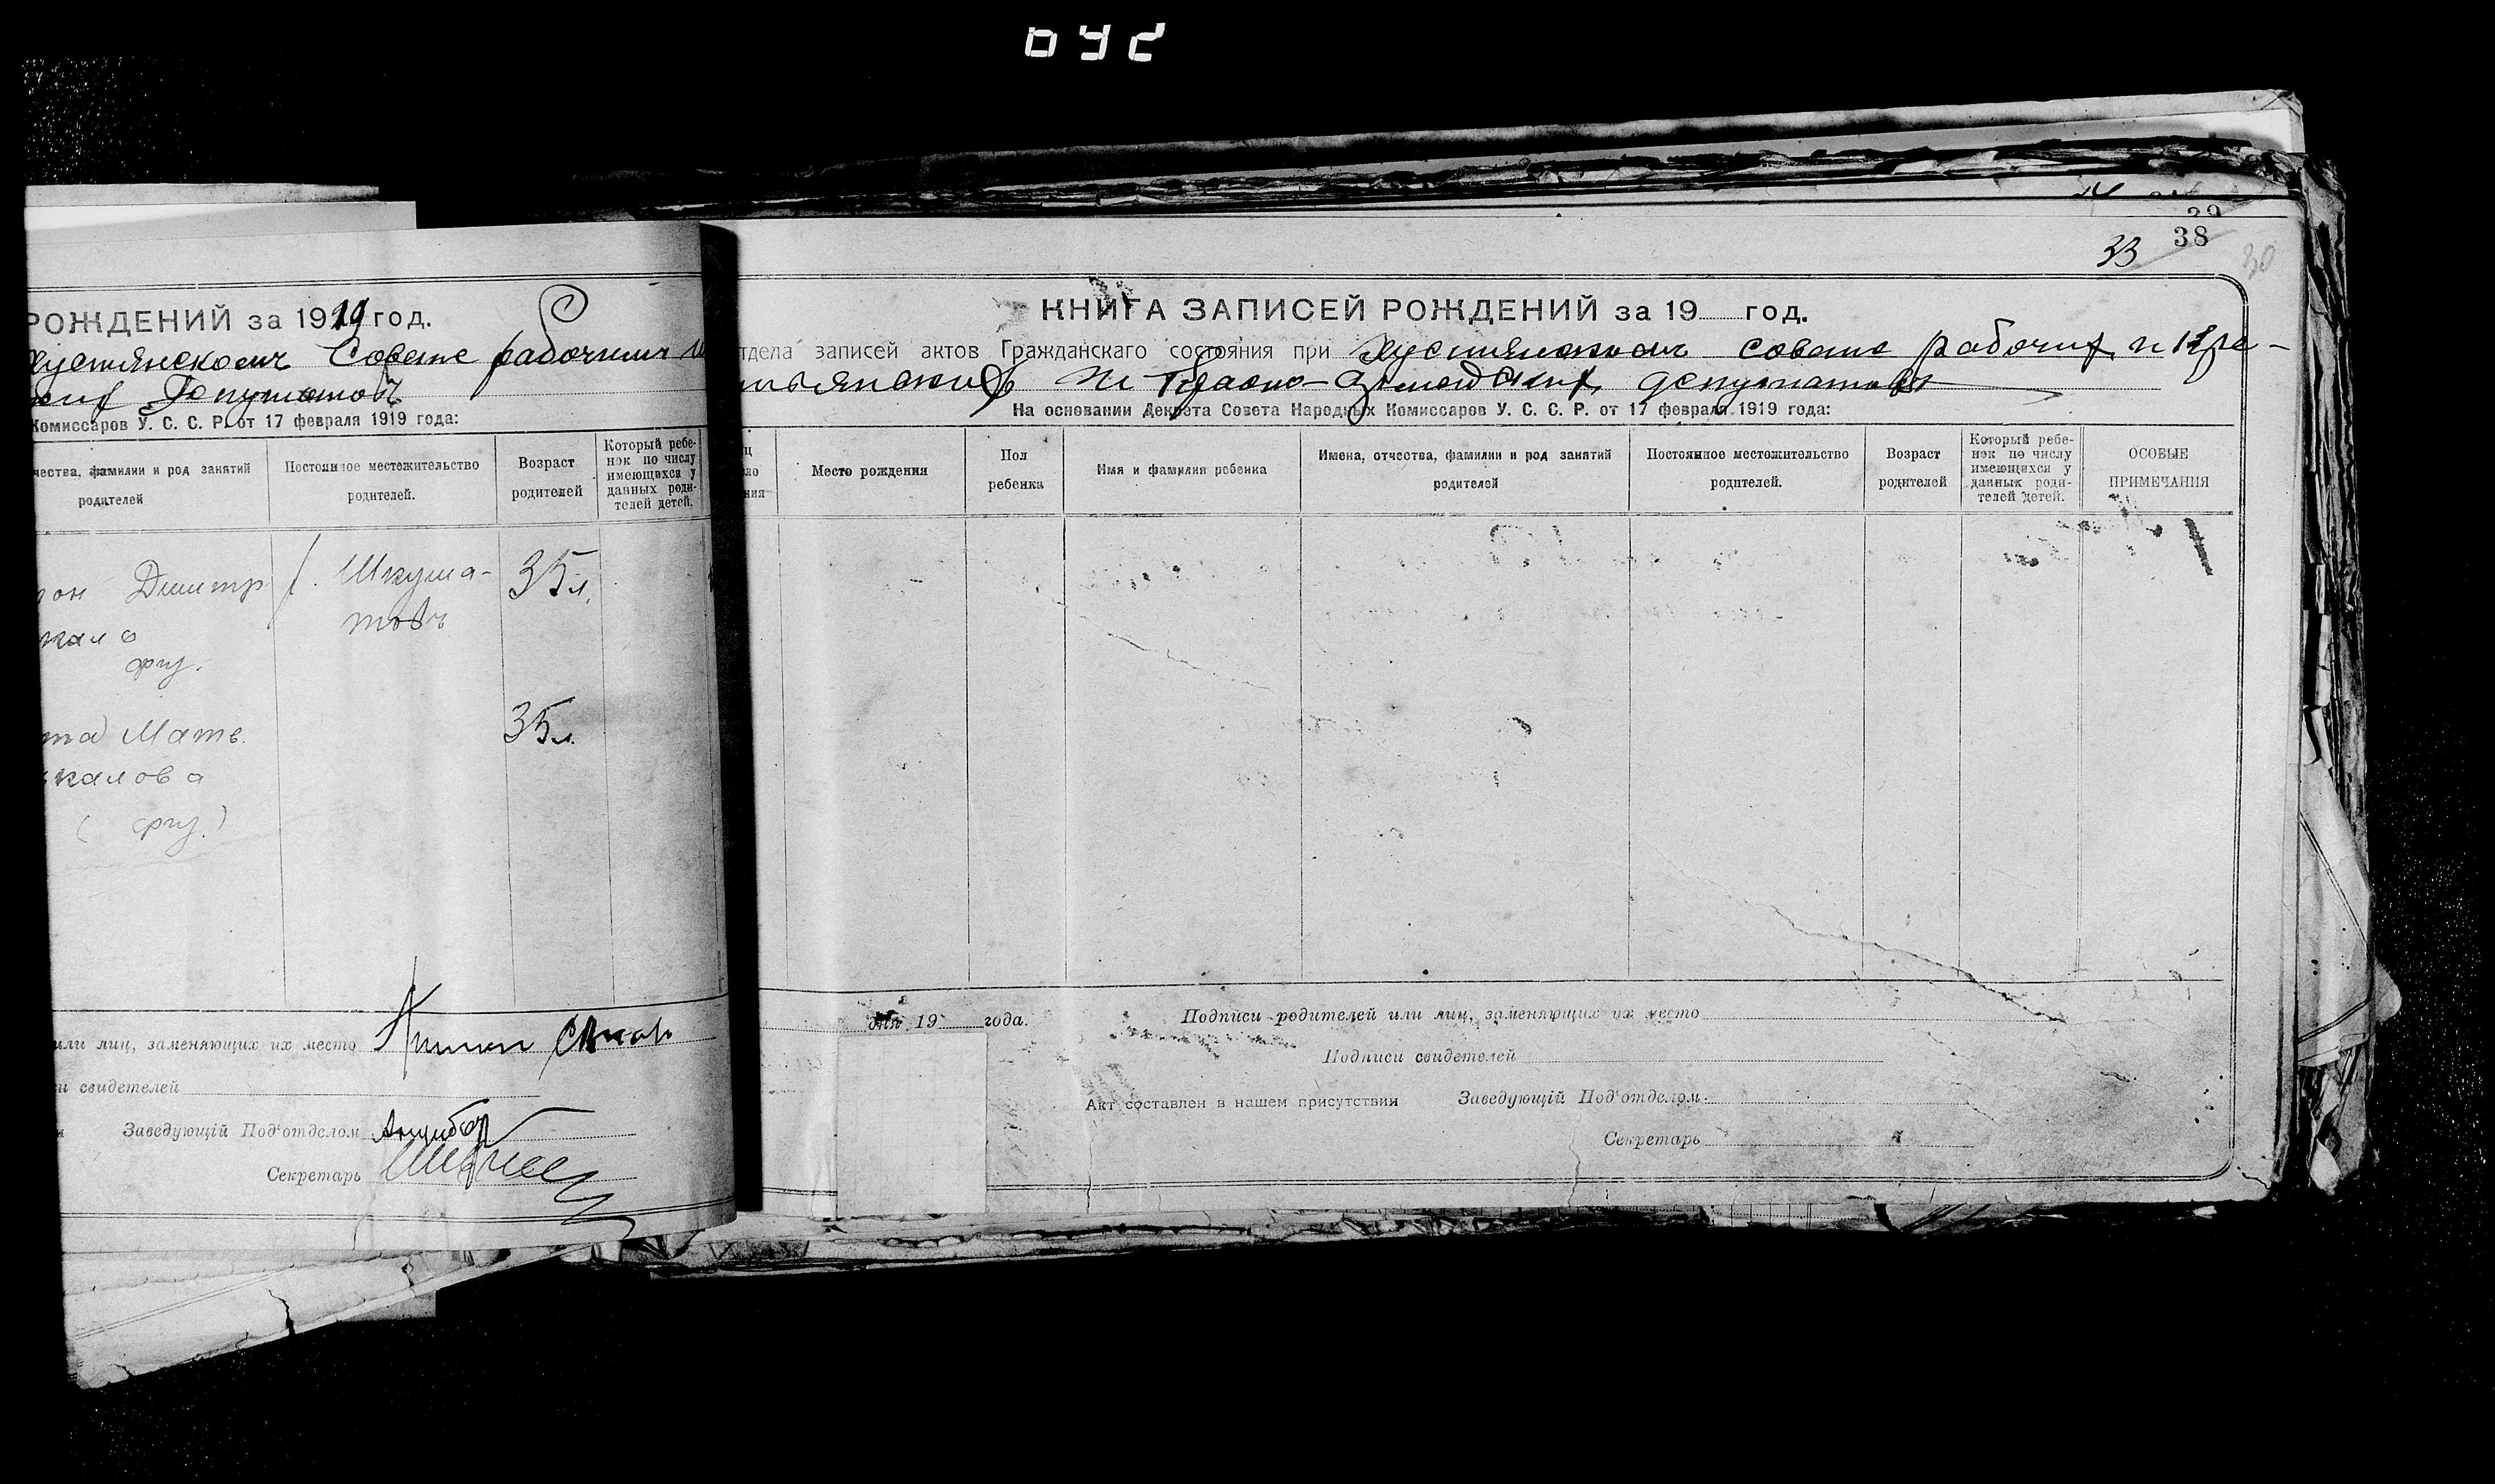 042
РОЖДЕНИЙ за 1919 год.
хустянскомъ Совете рабочихъ и
Депутатовъ
Комиссаров У. С. С. Р. от 17 февраля 1919 года:
чества, фамилии и род занятий родителей
Постоянное местожительство родителей.
Возраст родителей
Который ребенок по числу имеющихся у данных родителей детей.
он Дмитр
кало
Шкума-
товъ
35 л.
та Матв.
калова
35 л.
или лиц, заменяющих их место
и свидетелей
Заведующій Под‘отделом
Секретарь
39
38
33
30
КНИГА ЗАПИСЕЙ РОЖДЕНИЙ за 19 год.
тдела записей актов Гражданскаго состояния при Хустянскомъ совете рабочих и Кре-
стьянских и Красно-Армейских депутатовъ
На основании Декрета Совета Народных Комиссаров У. С. С. Р. от 17 февраля 1919 года:
Место рождения
Пол ребенка
Имя и фамилия ребенка
Имена, отчества, фамилии и род занятий родителей
Постоянное местожительство родителей.
Возраст родителей
Который ребенок по числу имеющихся у данных родителей детей.
ОСОБЫЕ ПРИМЕЧАНИЯ
дня 19 года.
Подписи родителей или лиц, заменяющих их место
Подписи свидетелей
Акт составлен в нашем присутствии Заведующій Под‘отделом
Секретарь